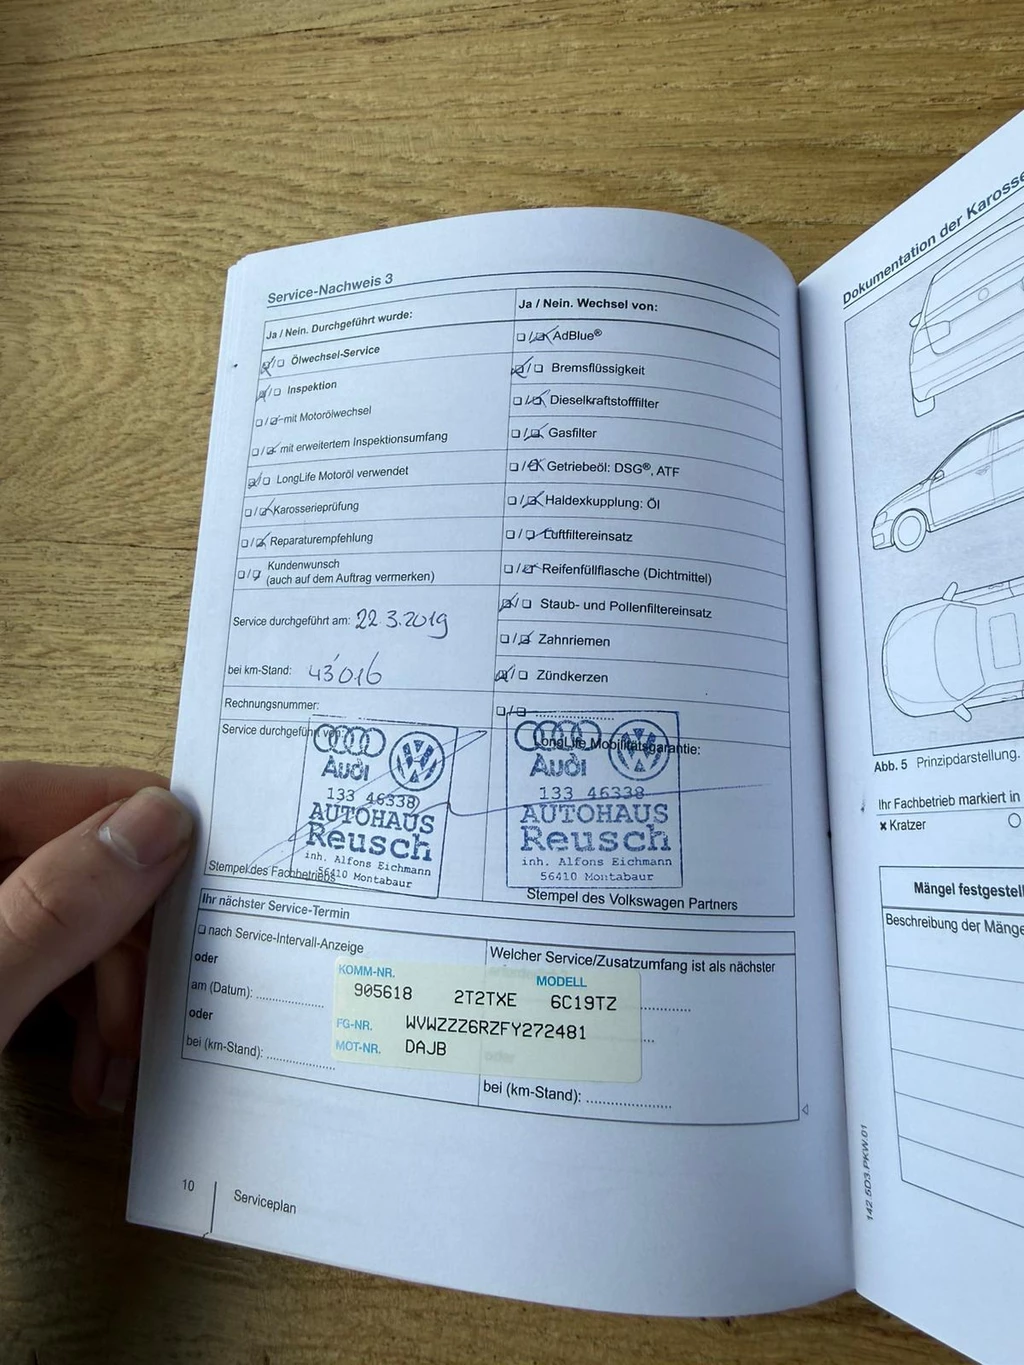 Service-Nachweis 3
Ja / Nein. Durchgeführt wurde:
Ölwechsel-Service
Inspektion
mit Motorölwechsel
mit erweitertem Inspektionsumfang
LongLife Motoröl verwendet
Karosserieprüfung
Reparaturempfehlung
Kundenwunsch
(auch auf dem Auftrag vermerken)
Service durchgeführt am: 22.3.2019
bei km-Stand: 43'016
Rechnungsnummer:
Service durchgeführt von:
Audi
133 46338
AUTOHAUS
Reusch
inh. Alfons Eichmann
56410 Montabaur
Stempel des Fachbetriebs
Ja / Nein. Wechsel von:
AdBlue®
Bremsflüssigkeit
Dieselkraftstofffilter
Gasfilter
Getriebeöl: DSG®, ATF
Haldexkupplung: Öl
Luftfiltereinsatz
Reifenfüllflasche (Dichtmittel)
Staub- und Pollenfiltereinsatz
Zahnriemen
Zündkerzen
LongLife Mobilitätsgarantie:
Audi
133 46338
AUTOHAUS
Reusch
inh. Alfons Eichmann
56410 Montabaur
Stempel des Volkswagen Partners
Ihr nächster Service-Termin
nach Service-Intervall-Anzeige
oder
am (Datum):
oder
bei (km-Stand):
Welcher Service/Zusatzumfang ist als nächster
KOMM-NR. MODELL
905618 2T2TXE 6C19TZ
FG-NR. WVWZZZ6RZFY272481
MOT-NR. DAJB
oder
bei (km-Stand):
10
Serviceplan
Dokumentation der Karosse
Abb. 5 Prinzipdarstellung.
Ihr Fachbetrieb markiert in
× Kratzer
Mängel festgestell
Beschreibung der Mänge
142.5D3.PKW.01